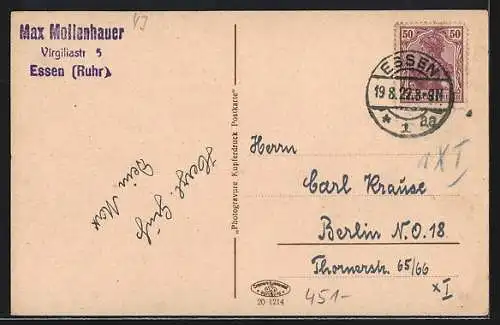 Max Mollenhauer
Virgiliastr 5
Essen (Ruhr)
50 50
ESSEN
19.8.22.
* 1 aa
Herzl. Gruß
Dein Max
„Photogravure Kupferdruck Postkarte"
Herrn
Carl Krause
Berlin N.O.18
Thornerstr. 65/66
1XI
xI
20 1214
451-